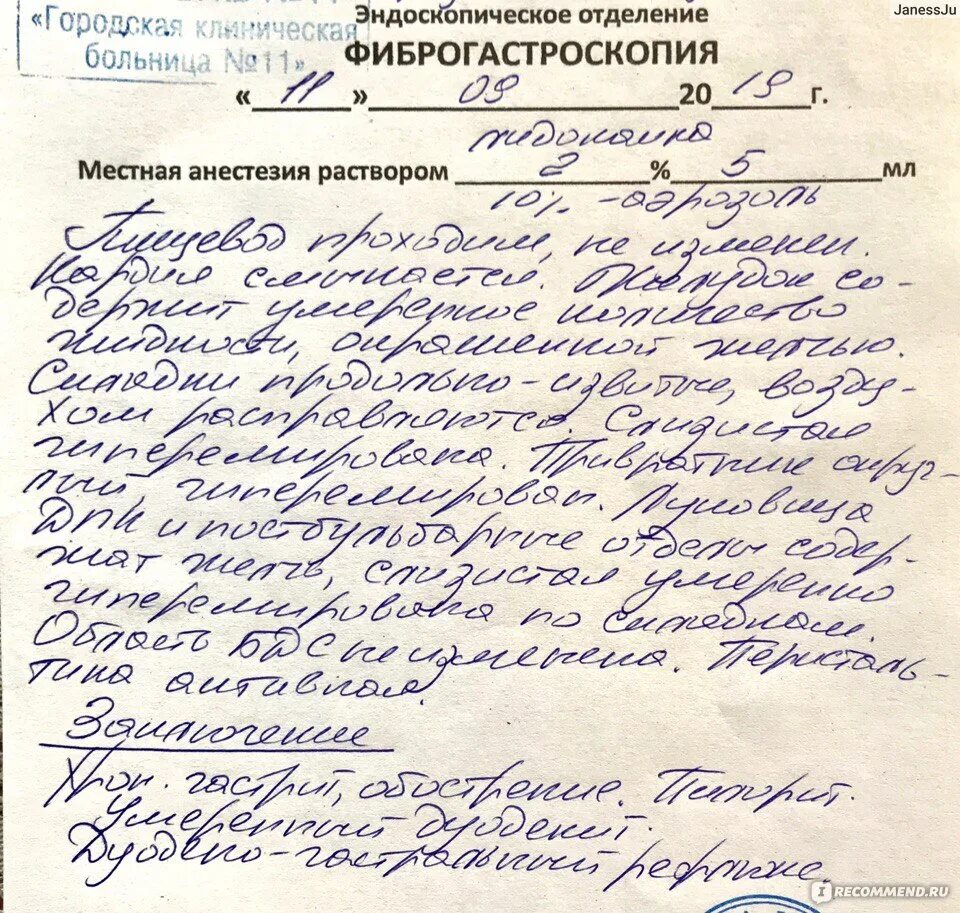 JanessJu
Эндоскопическое отделение
«Городская клиническая
больница №11»
ФИБРОГАСТРОСКОПИЯ
« 11 » 09 20 19 г.
лидокаина
Местная анестезия раствором 2 % 5 мл
10% - аэрозоль
Пищевод проходим, не изменен.
Кардия смыкается. Желудок со-
держит умеренное количество
жидкости, окрашенной желчью.
Складки продольно-извитые, возду-
хом расправляются. Слизистая
гиперемирована. Привратник округ-
лый, гиперемирован. Луковица
ДПК и постбульбарные отделы содер-
жат желчь, слизистая умеренно
гиперемирована по складкам.
Область БДС не изменена. Перисталь-
тика активная.
Заключение
Хрон. гастрит, обострение. Пилорит.
Умеренный дуоденит.
Дуодено-гастральный рефлюкс.
IRECOMMEND.RU